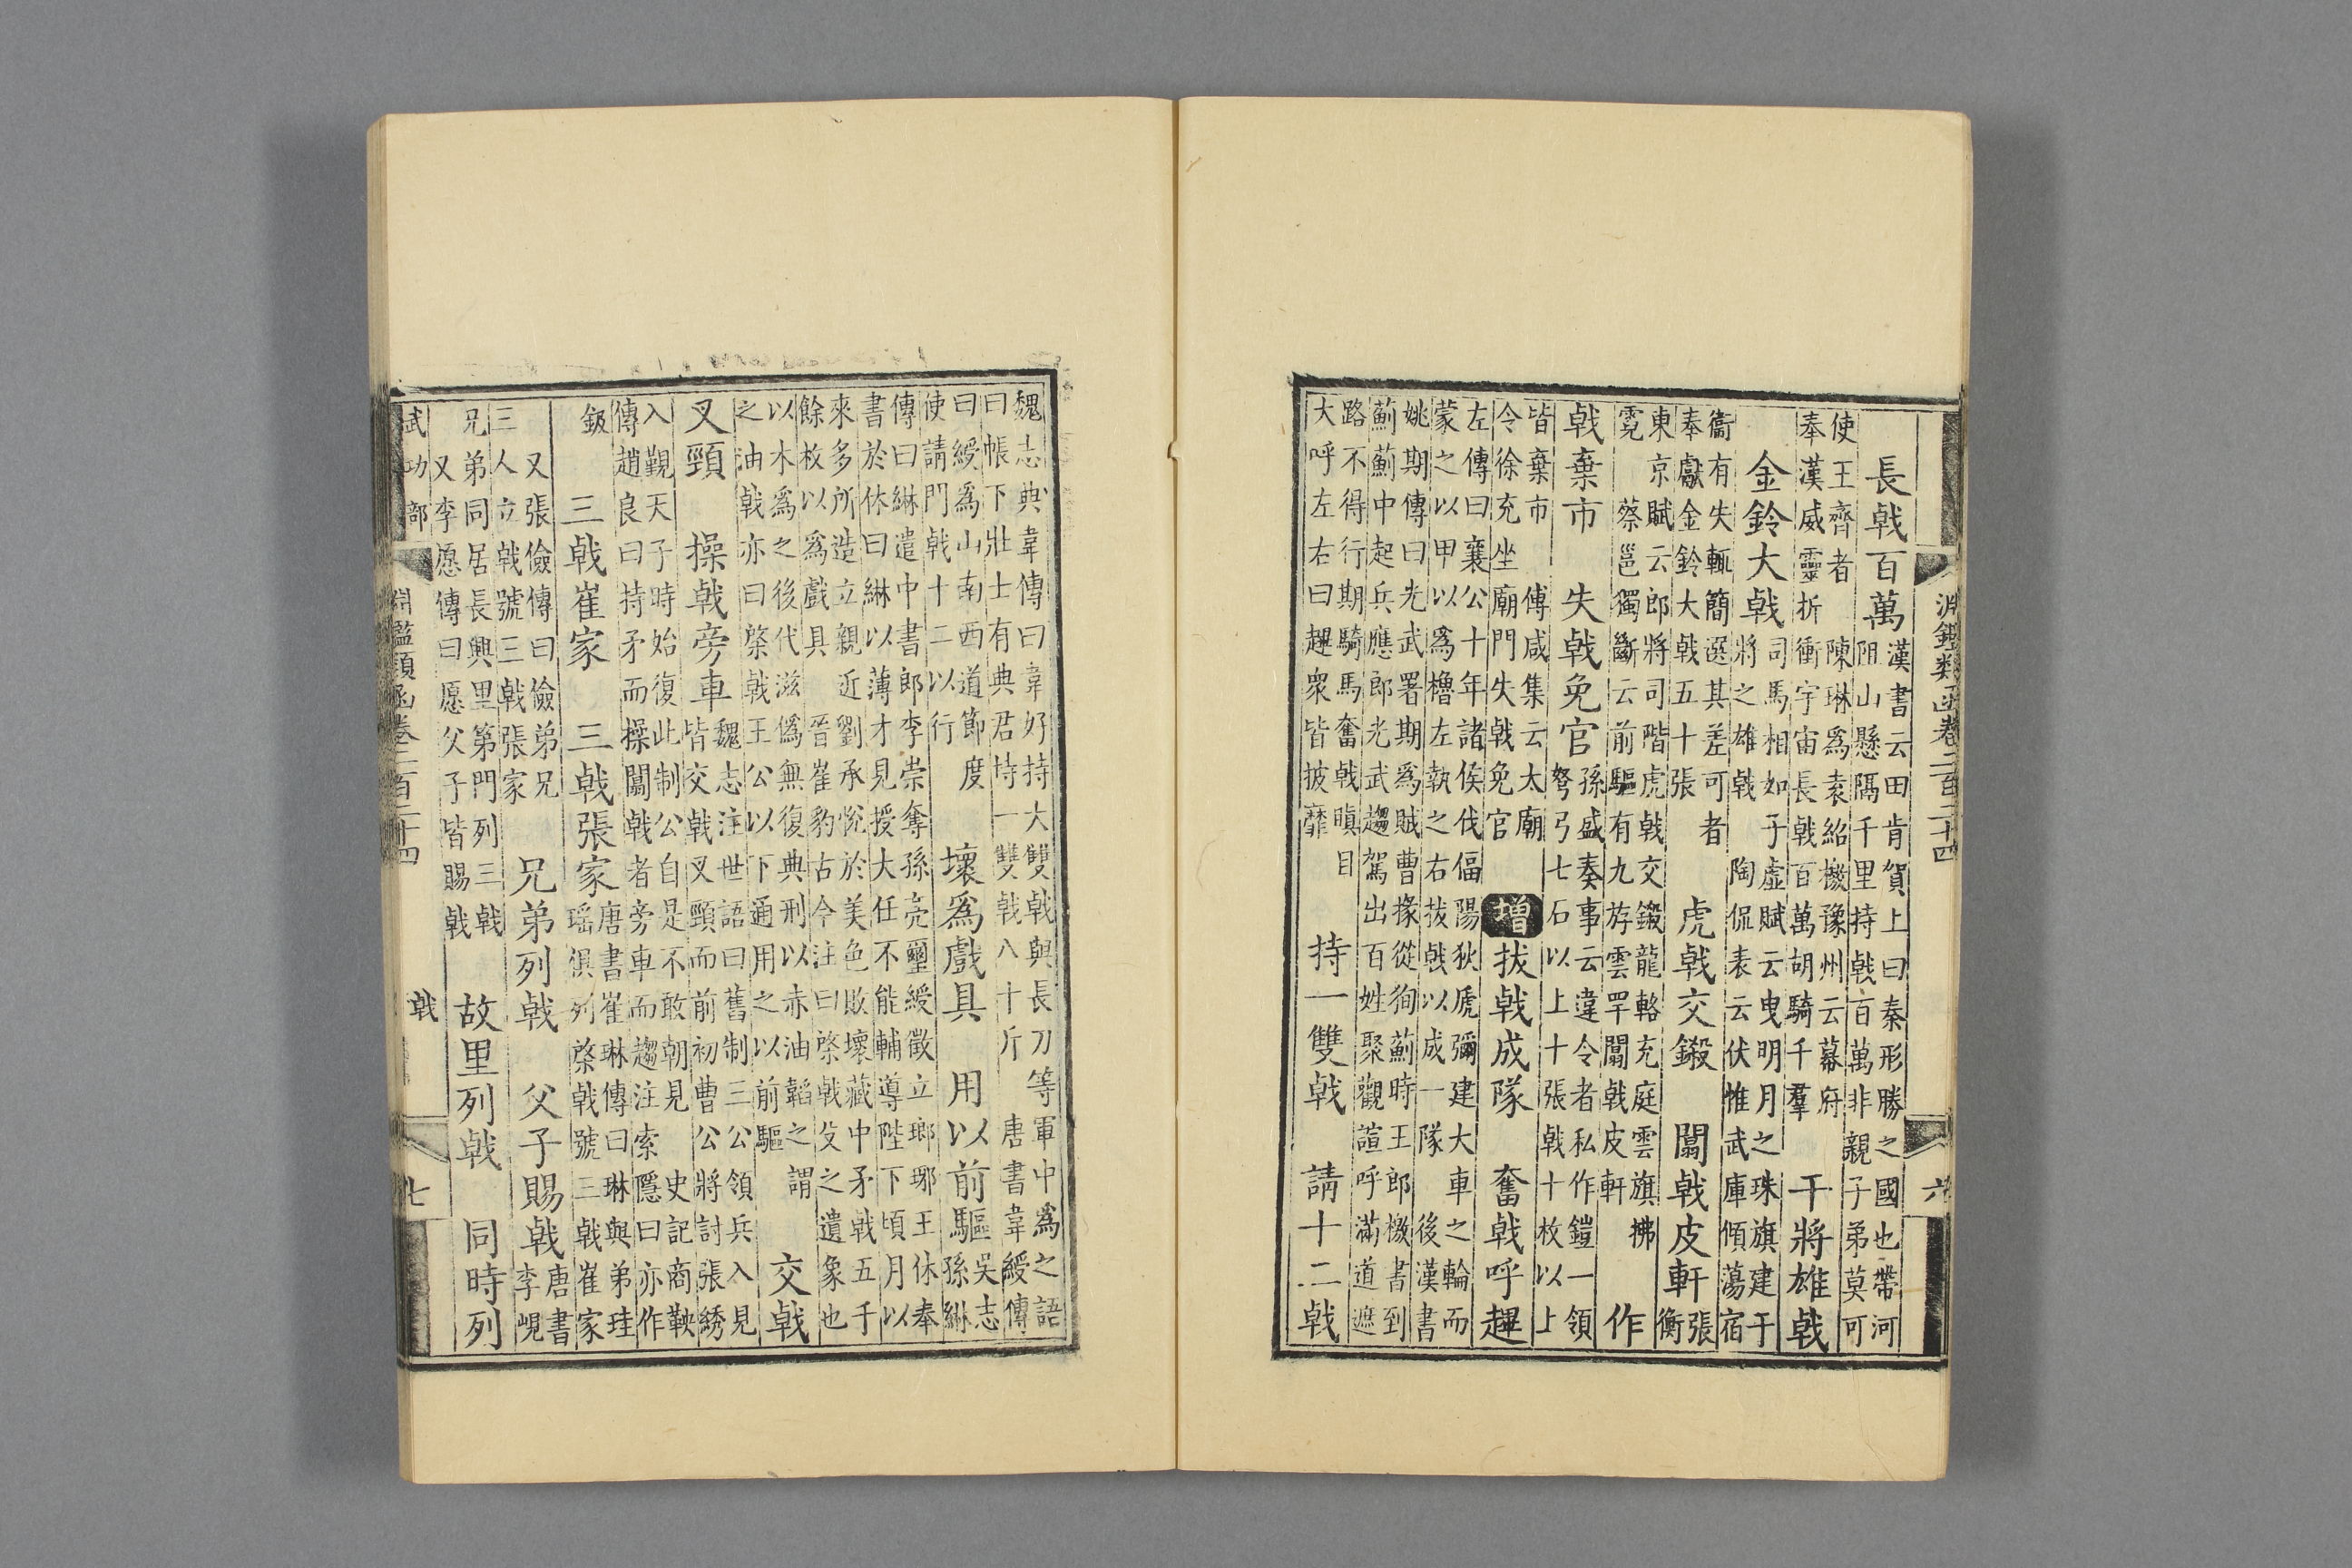 淵鑑類函卷二百二十四 六
長戟百萬 漢書云田肯賀上曰秦形勝之國也帶河
阻山懸隔千里持戟百萬非親子弟莫可
使王齊者 陳琳爲袁紹檄豫州云幕府
奉漢威靈折衝宇宙長戟百萬胡騎千羣 干將雄戟
金鈴大戟 司馬相如子虛賦云曳明月之珠旗建干
將之雄戟 陶侃表云伏惟武庫傾蕩宿
衞有失輒簡選其差可者
奉獻金鈴大戟五十張 虎戟交鎩 闟戟皮軒 張
衡
東京賦云郎將司階虎戟交鎩龍輅充庭雲旗拂
霓 蔡邕獨斷云前驅有九斿雲罕闟戟皮軒 作
戟棄市 失戟免官 孫盛奏事云違令者私作鎧一領
弩弓七石以上十張戟十枚以上
皆棄市 傅咸集云太廟
令徐充坐廟門失戟免官 增 拔戟成隊 奮戟呼趩
左傳曰襄公十年諸侯伐偪陽狄虒彌建大車之輪而
蒙之以甲以爲櫓左執之右拔戟以成一隊 後漢書
姚期傳曰光武署期爲賊曹掾從徇薊時王郎檄書到
薊薊中起兵應郎光武趨駕出百姓聚觀諠呼滿道遮
路不得行期騎馬奮戟瞋目
大呼左右曰趩衆皆披靡 持一雙戟 請十二戟
魏志典韋傳曰韋好持大雙戟與長刀等軍中爲之語
曰帳下壯士有典君持一雙戟八十斤 唐書韋綬傳
曰綬爲山南西道節度
使請門戟十二以行 壞爲戲具 用以前驅 吳志
孫綝
傳曰綝遣中書郎李崇奪孫亮璽綬徵立瑯琊王休奉
書於休曰綝以薄才見授大任不能輔導陛下頃月以
來多所造立親近劉承悅於美色敗壞藏中矛戟五千
餘枚以爲戲具 晉崔豹古今注曰棨戟殳之遺象也
以木爲之後代滋僞無復典刑以赤油韜之謂
之油戟亦曰棨戟王公以下通用之以前驅 交戟
叉頸 操戟旁車 魏志注世語曰舊制三公領兵入見
皆交戟叉頸而前初曹公將討張綉
入覲天子時始復此制公自是不敢朝見 史記商鞅
傳趙良曰持矛而操闟戟者旁車而趨注索隱曰亦作
鈒 三戟崔家 三戟張家 唐書崔琳傳曰琳與弟珪
瑶俱列棨戟號三戟崔家
又張儉傳曰儉弟兄
三人立戟號三戟張家 兄弟列戟 父子賜戟 唐書
李峴
兄弟同居長興里第門列三戟
又李愿傳曰愿父子皆賜戟 故里列戟 同時列
武功部 淵鑑類函卷二百二十四 戟 七